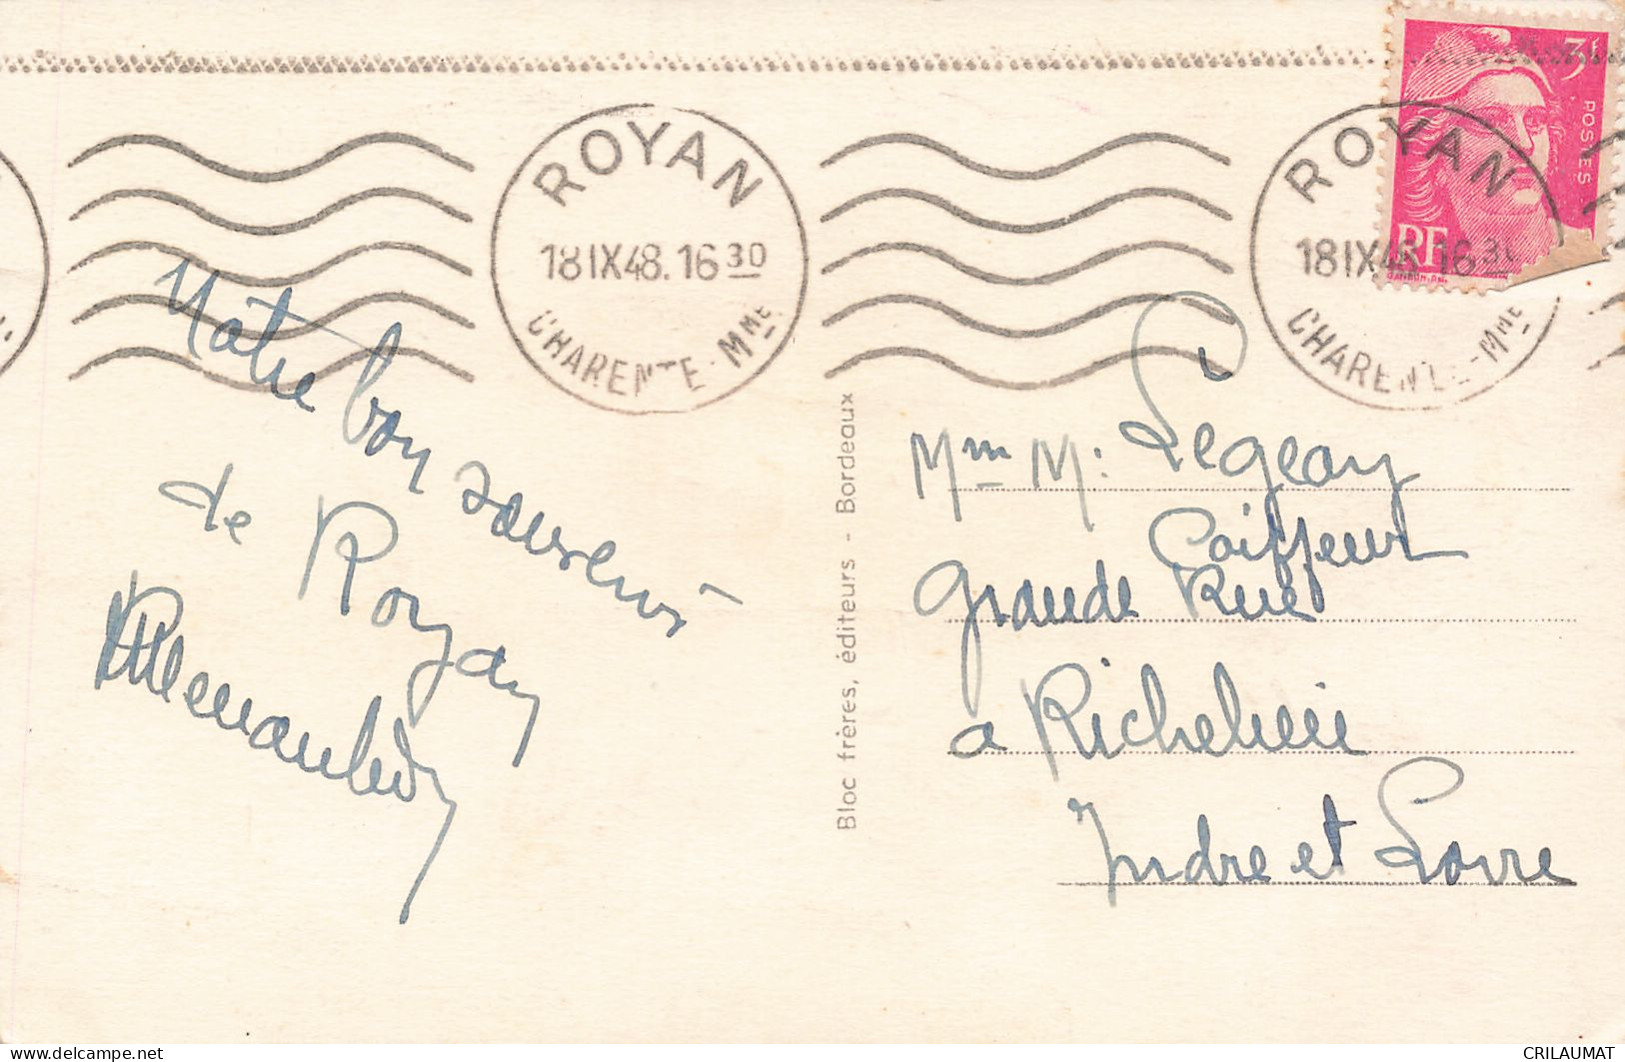 ROYAN
18 IX 48. 16 30
CHARENTE-MME
ROYAN
18 IX 48 16 30
CHARENTE-MME
3F
POSTES
RF
GANDON.DEL.
Notre bon souvenir
de Royan
Mm M: Legeay
Coiffeur
Grande Rue
a Richelieu
Indre et Loire
Bloc frères, éditeurs - Bordeaux
www.delcampe.net
CRILAUMAT